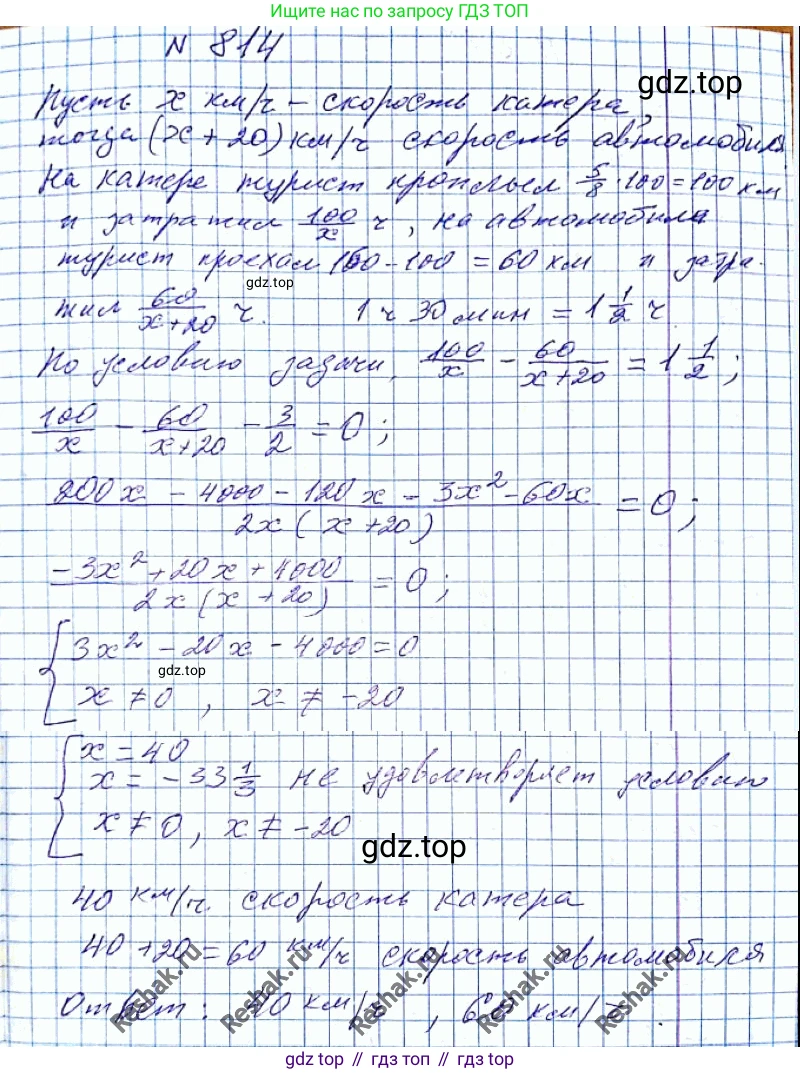 Ищите нас по запросу ГДЗ ТОП
N 814
gdz.top
Пусть x км/ч – скорость катера,
тогда (x + 20) км/ч скорость автомобиля
На катере турист проплыл 5/8 · 100 = 100 км
и затратил 100/x ч, на автомобиле
турист проехал 160 - 100 = 60 км и затра-
gdz.top
тил 60/(x+20) ч. 1 ч 30 мин = 1 1/2 ч
По условию задачи, 100/x - 60/(x+20) = 1 1/2;
100/x - 60/(x+20) - 3/2 = 0;
(200x - 4000 - 120x - 3x² - 60x)/(2x(x+20)) = 0;
(-3x² + 20x + 4000)/(2x(x+20)) = 0;
{ 3x² - 20x - 4000 = 0
gdz.top
x ≠ 0, x ≠ -20
{ x = 40
x = -33 1/3 не удовлетворяет условию
x ≠ 0, x ≠ -20
gdz.top
40 км/ч. скорость катера
40 + 20 = 60 км/ч скорость автомобиля
Ответ: 40 км/ч, 60 км/ч.
Reshak.ru
Reshak.ru
Reshak.ru
Reshak.ru
gdz top // гдз топ // gdz.top